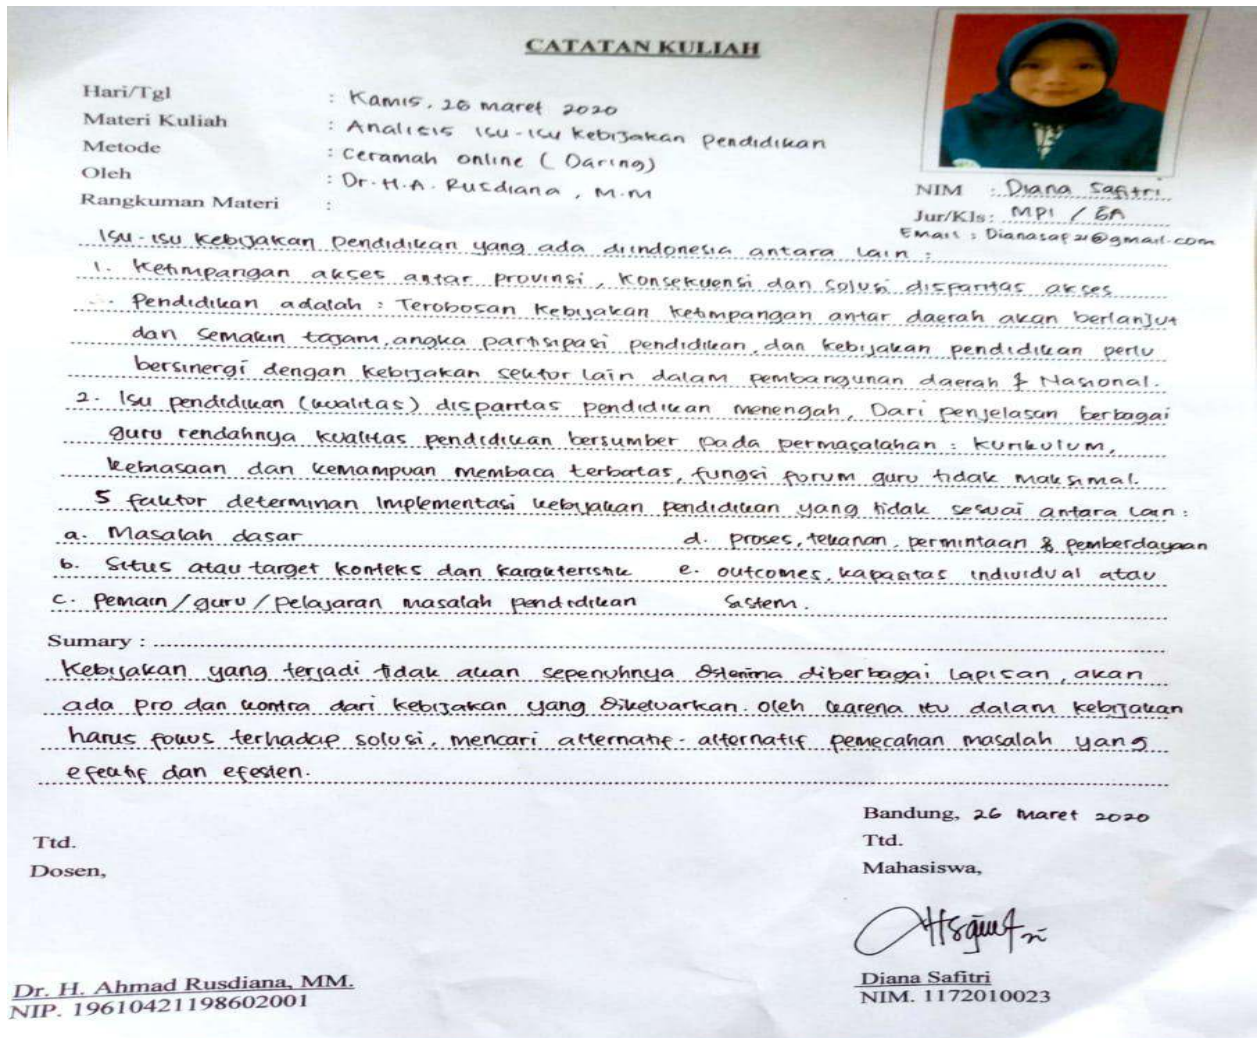 CATATAN KULIAH
Hari/Tgl : Kamis, 26 maret 2020
Materi Kuliah : Analisis isu-isu kebijakan pendidikan
Metode : Ceramah online (Daring)
Oleh : Dr. H. A. Rusdiana, M.M
Rangkuman Materi :
NIM : Diana Safitri
Jur/Kls: MPI / 6A
Email : Dianasaf21@gmail.com
Isu-isu kebijakan pendidikan yang ada diindonesia antara lain :
1. Ketimpangan akses antar provinsi, konsekuensi dan solusi disparitas akses
pendidikan adalah : Terobosan kebijakan ketimpangan antar daerah akan berlanjut
dan semakin tajam, angka partisipasi pendidikan, dan kebijakan pendidikan perlu
bersinergi dengan kebijakan sektor lain dalam pembangunan daerah & Nasional.
2. Isu pendidikan (kualitas) disparitas pendidikan menengah, Dari penjelasan berbagai
guru rendahnya kualitas pendidikan bersumber pada permasalahan : kurikulum,
kebiasaan dan kemampuan membaca terbatas, fungsi forum guru tidak maksimal.
5 faktor determinan implementasi kebijakan pendidikan yang tidak sesuai antara lain :
a. Masalah dasar
b. Situs atau target konteks dan karakteristik
c. Pemain/guru/pelajaran masalah pendidikan
d. proses, tekanan, permintaan & pemberdayaan
e. outcomes, kapasitas individual atau
sistem.
Sumary :
Kebijakan yang terjadi tidak akan sepenuhnya diterima diberbagai lapisan, akan
ada pro dan kontra dari kebijakan yang dikeluarkan. oleh karena itu dalam kebijakan
harus fokus terhadap solusi, mencari alternatif-alternatif pemecahan masalah yang
efektif dan efesien.
Bandung, 26 Maret 2020
Ttd.
Dosen,
Ttd.
Mahasiswa,
Dr. H. Ahmad Rusdiana, MM.
NIP. 19610421198602001
Diana Safitri
NIM. 1172010023